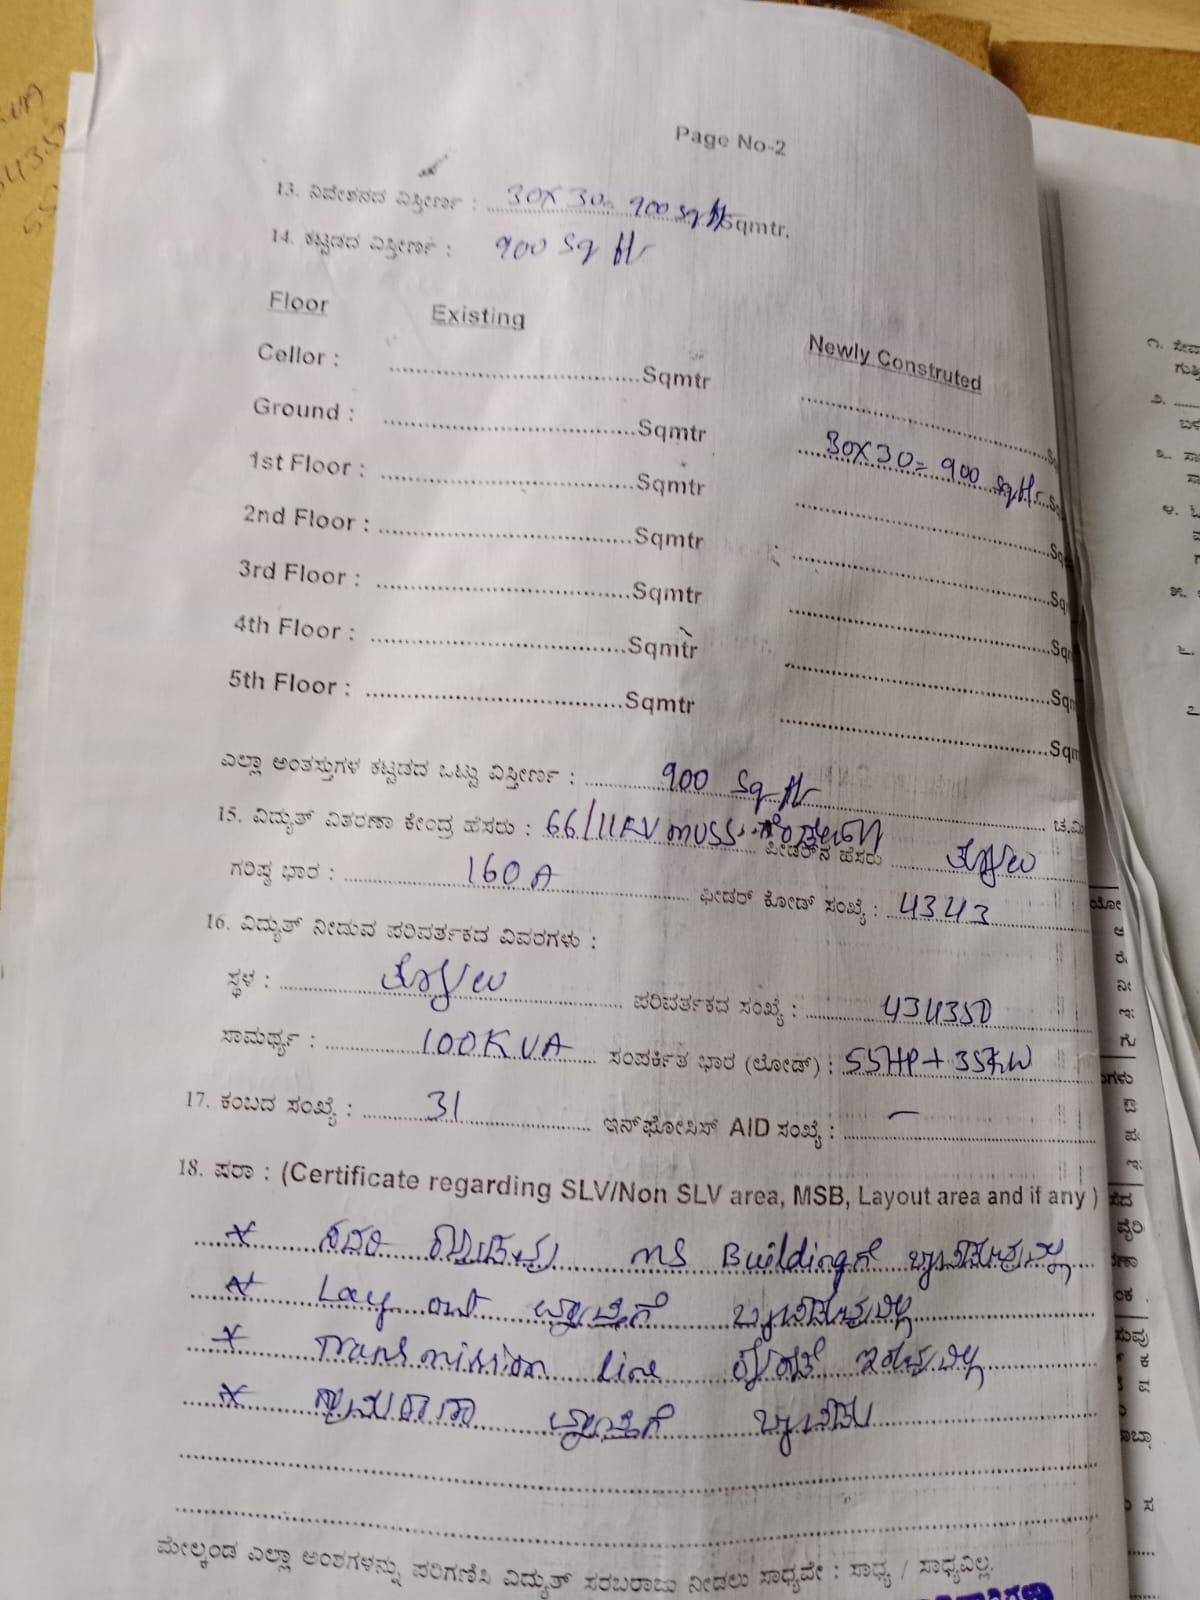 Page No-2
13. ನಿವೇಶನದ ವಿಸ್ತೀರ್ಣ : 30X30= 900 sq ft Sqmtr.
14. ಕಟ್ಟಡದ ವಿಸ್ತೀರ್ಣ : 900 Sq ft
Floor Existing Newly Construted
Cellor : Sqmtr
Ground : Sqmtr 30X30= 900 sqft
1st Floor : Sqmtr
2nd Floor : Sqmtr
3rd Floor : Sqmtr
4th Floor : Sqmtr
5th Floor : Sqmtr
ಎಲ್ಲಾ ಅಂತಸ್ತುಗಳ ಕಟ್ಟಡದ ಒಟ್ಟು ವಿಸ್ತೀರ್ಣ : 900 Sq ft ಚ.ಮಿ
15. ವಿದ್ಯುತ್ ವಿತರಣಾ ಕೇಂದ್ರ ಹೆಸರು : 66/11KV MUSS ಫೀಡರ್‌ನ ಹೆಸರು
ಗರಿಷ್ಠ ಭಾರ : 160A ಫೀಡರ್ ಕೋಡ್ ಸಂಖ್ಯೆ : 4343
16. ವಿದ್ಯುತ್ ನೀಡುವ ಪರಿವರ್ತಕದ ವಿವರಗಳು :
ಸ್ಥಳ : ಪರಿವರ್ತಕದ ಸಂಖ್ಯೆ : 434350
ಸಾಮರ್ಥ್ಯ : 100KVA ಸಂಪರ್ಕಿತ ಭಾರ (ಲೋಡ್) : 55HP+35KW
17. ಕಂಬದ ಸಂಖ್ಯೆ : 31 ಇನ್‌ಫೋಸಿಸ್ AID ಸಂಖ್ಯೆ : —
18. ಷರಾ : (Certificate regarding SLV/Non SLV area, MSB, Layout area and if any )
* ಸದರಿ ಕಟ್ಟಡವು MS Buildingಗೆ ಒಳಪಡುವುದಿಲ್ಲ
* Lay out ವ್ಯಾಪ್ತಿಗೆ ಒಳಪಡುವುದಿಲ್ಲ
* Transmission line ಕೆಳಗಡೆ ಇರುವುದಿಲ್ಲ
* ಗ್ರಾಮಠಾಣಾ ವ್ಯಾಪ್ತಿಗೆ
ಮೇಲ್ಕಂಡ ಎಲ್ಲಾ ಅಂಶಗಳನ್ನು ಪರಿಗಣಿಸಿ ವಿದ್ಯುತ್ ಸರಬರಾಜು ನೀಡಲು ಸಾಧ್ಯವೇ : ಸಾಧ್ಯ / ಸಾಧ್ಯವಿಲ್ಲ.